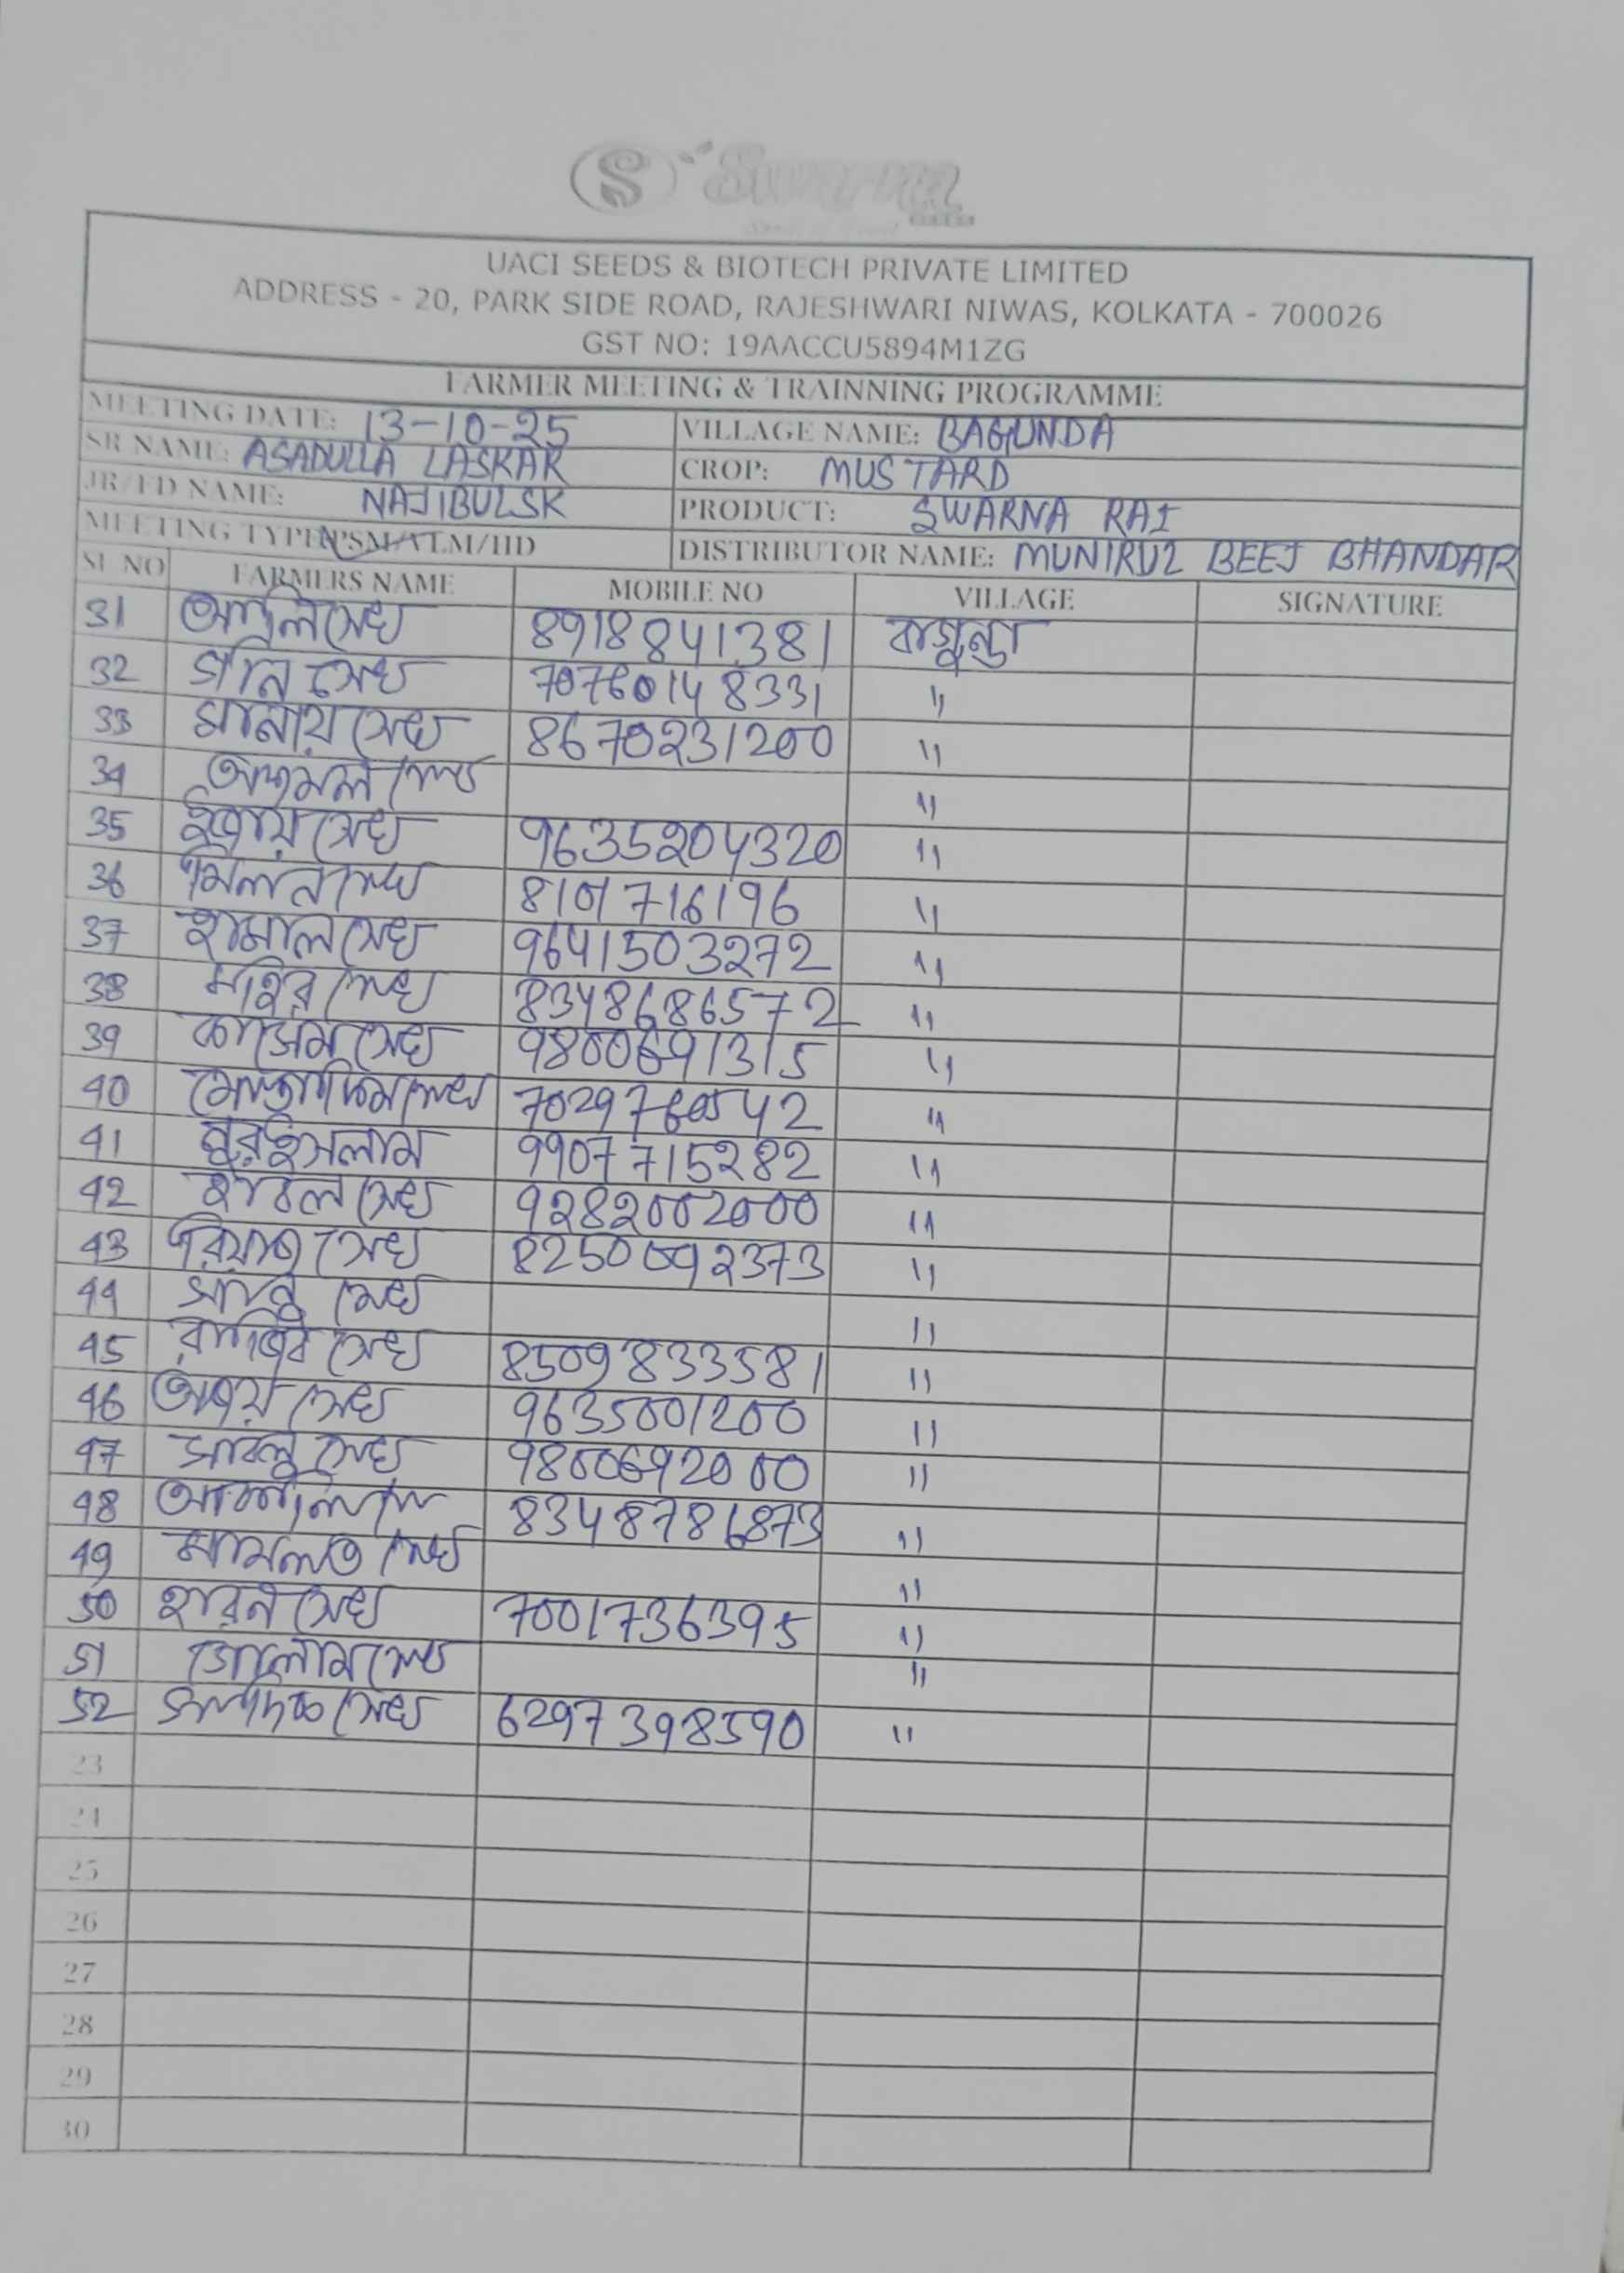 S Swarna
UACI SEEDS & BIOTECH PRIVATE LIMITED
ADDRESS - 20, PARK SIDE ROAD, RAJESHWARI NIWAS, KOLKATA - 700026
GST NO: 19AACCU5894M1ZG
FARMER MEETING & TRAINNING PROGRAMME
MEETING DATE: 13-10-25 VILLAGE NAME: BAGUNDA
SR NAME: ASADULLA LASKAR CROP: MUSTARD
JR/FD NAME: NAJIBULSK PRODUCT: SWARNA RAI
MEETING TYPE: PSM/ATM/HD DISTRIBUTOR NAME: MUNIRUL BEEJ BHANDAR
SL NO FARMERS NAME MOBILE NO VILLAGE SIGNATURE
31 সেখ 8918841381 বাগুন্ডা
32 গনি সেখ 70760148331 "
33 সানায় সেখ 8670231200 "
34 সেখ "
35 সেখ 9635204320 "
36 মিলন সেখ 8101716196 "
37 সেখ 9641503272 "
38 মহির সেখ 8348686572 "
39 কাসেম সেখ 9800691315 "
40 সেখ 7029760542 "
41 নুরইসলাম 9907715282 "
42 সেখ 9282002000 "
43 রিয়াজ সেখ 8250092373 "
44 সেখ "
45 রাজিব সেখ 8509833581 "
46 অজয় সেখ 9635001200 "
47 সাবলু সেখ 9800692000 "
48 8348786873 "
49 সেখ "
50 হারন সেখ 7001736395 "
51 গোলাম সেখ "
52 সেখ 6297398590 "
23
24
25
26
27
28
29
30